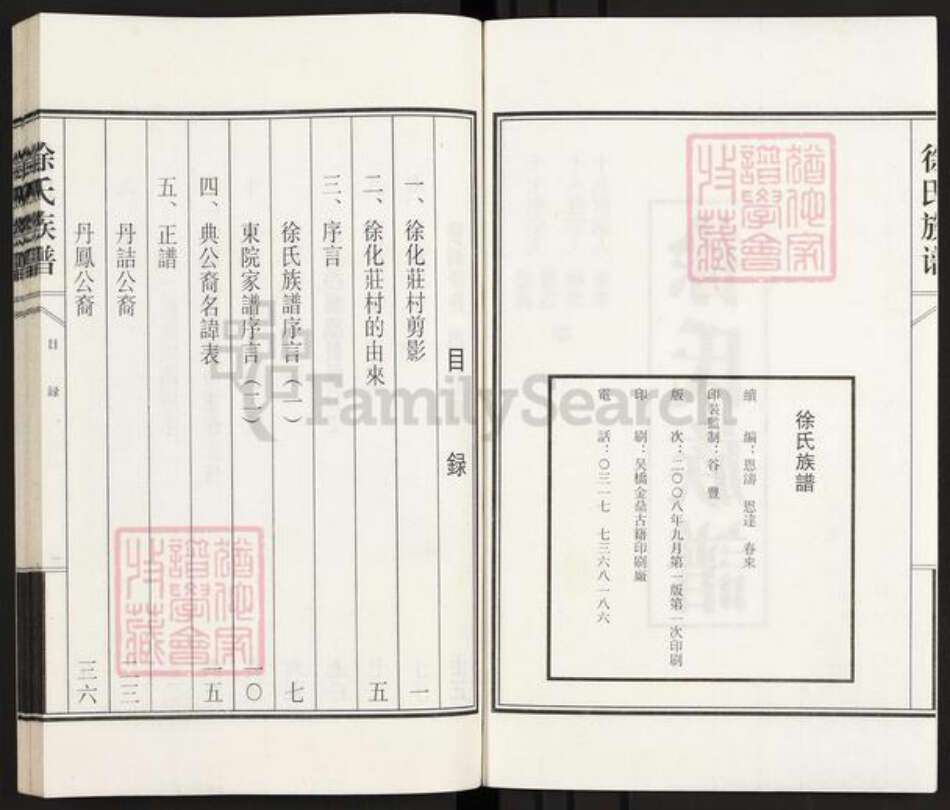 徐氏族譜
徐氏族譜
續 編：恩濤 恩達 春來
印裝監制：谷 豐
版 次：二〇〇八年九月第一版第一次印刷
印 刷：吴橋金鼎古籍印刷廠
電 話：〇三一七 七三六八一八六
猶他家
譜學會
收藏
目 録
一、徐化莊村剪影 一
二、徐化莊村的由來 五
三、序言
徐氏族譜序言（一） 七
東院家譜序言（二） 一〇
四、典公裔名諱表 一五
五、正譜
丹詰公裔 二三
丹鳳公裔 三六
徐氏族譜
目 録
猶他家
譜學會
收藏
FamilySearch